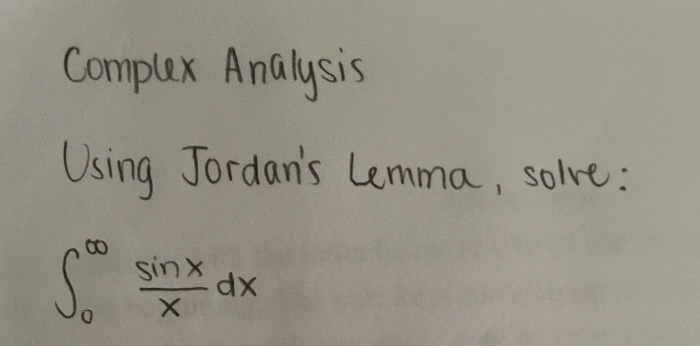 Complex Analysis
Using Jordan's Lemma, solve:
∫₀^∞ sin x / x dx